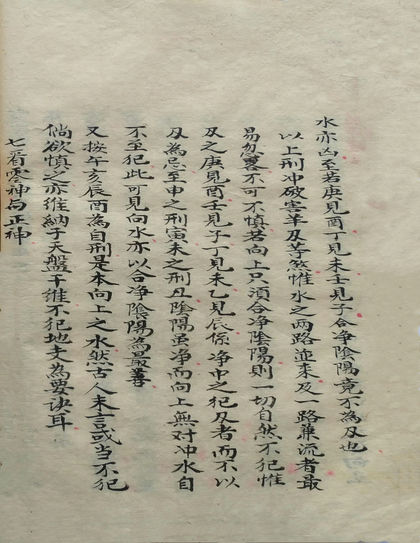 水亦凶至若庚見酉丁見未壬見子合净陰陽竟不為及也
以上刑冲破害羊及等煞惟水之两路並来及一路兼流者最
易忽畧不可不慎若向上只須合净陰陽則一切自然不犯惟
及之庚見酉壬見子丁見未乙見辰係净中之犯及者而不以
及為忌至申之刑寅未之刑丑陰陽虽净而向上無对冲水自
不至犯此可見向水亦以合净陰陽為最善
又按午亥辰酉為自刑是本向上之水然古人未言或当不犯
倘欲慎之亦維納于天盤干維不犯地支為要诀耳
七看零神与正神